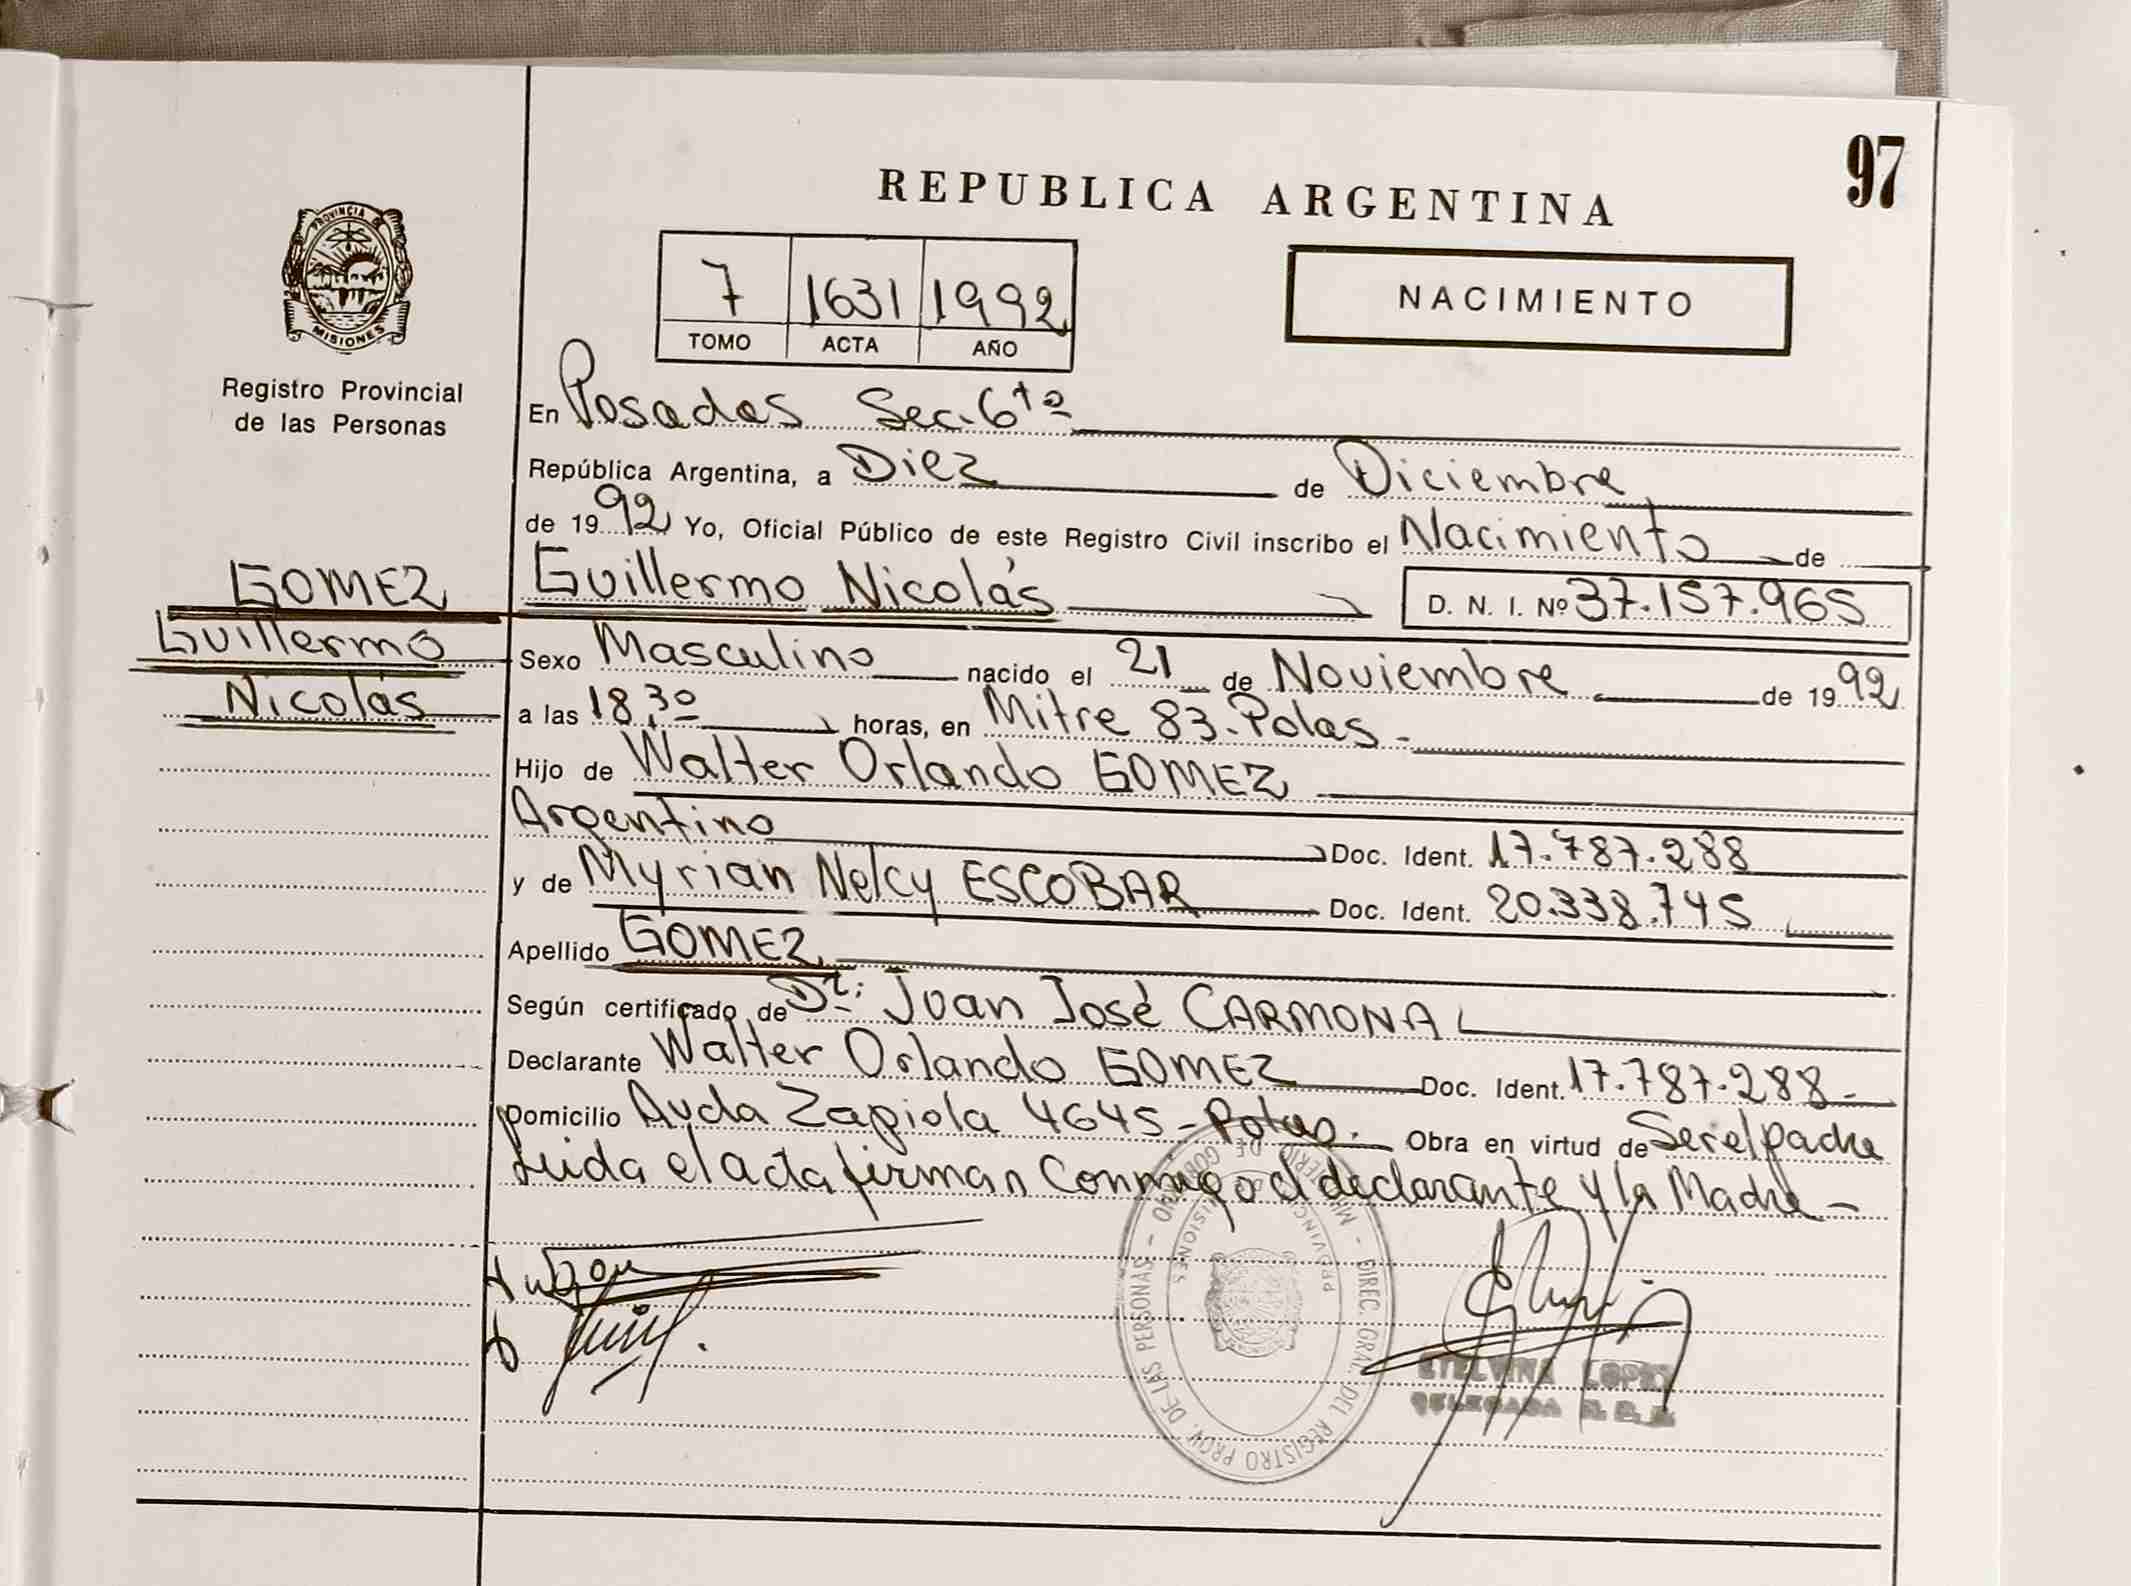 97
REPUBLICA ARGENTINA
PROVINCIA DE
MISIONES
Registro Provincial
de las Personas
7 1631 1992
TOMO ACTA AÑO
NACIMIENTO
En Posadas Sec. 6ta
República Argentina, a Diez de Diciembre
de 1992 Yo, Oficial Público de este Registro Civil inscribo el Nacimiento de
GOMEZ
Guillermo
Nicolás
Guillermo Nicolás D. N. I. Nº 37.157.965
Sexo Masculino nacido el 21 de Noviembre de 1992
a las 18,30 horas, en Mitre 83. Pdas -
Hijo de Walter Orlando GOMEZ
Argentino Doc. Ident. 17.787.288
y de Myrian Nelcy ESCOBAR Doc. Ident. 20.338.745
Apellido GOMEZ
Según certificado de Dr: Juan José CARMONA
Declarante Walter Orlando GOMEZ Doc. Ident. 17.787.288-
Domicilio Avda Zapiola 4645 - Pdas. Obra en virtud de Ser el padre
Leida el acta firman Conmigo el declarante y la Madre -
MINISTERIO DE GOBIERNO - DIREC. GRAL. DEL REGISTRO PROV. DE LAS PERSONAS -
PROVINCIA DE MISIONES
ETELVINA LOPEZ
DELEGADA